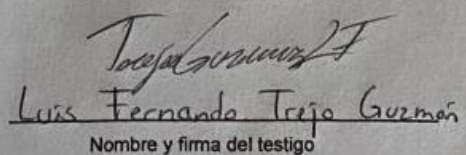 TrejoGuzmanLF
Luis Fernando Trejo Guzmán
Nombre y firma del testigo